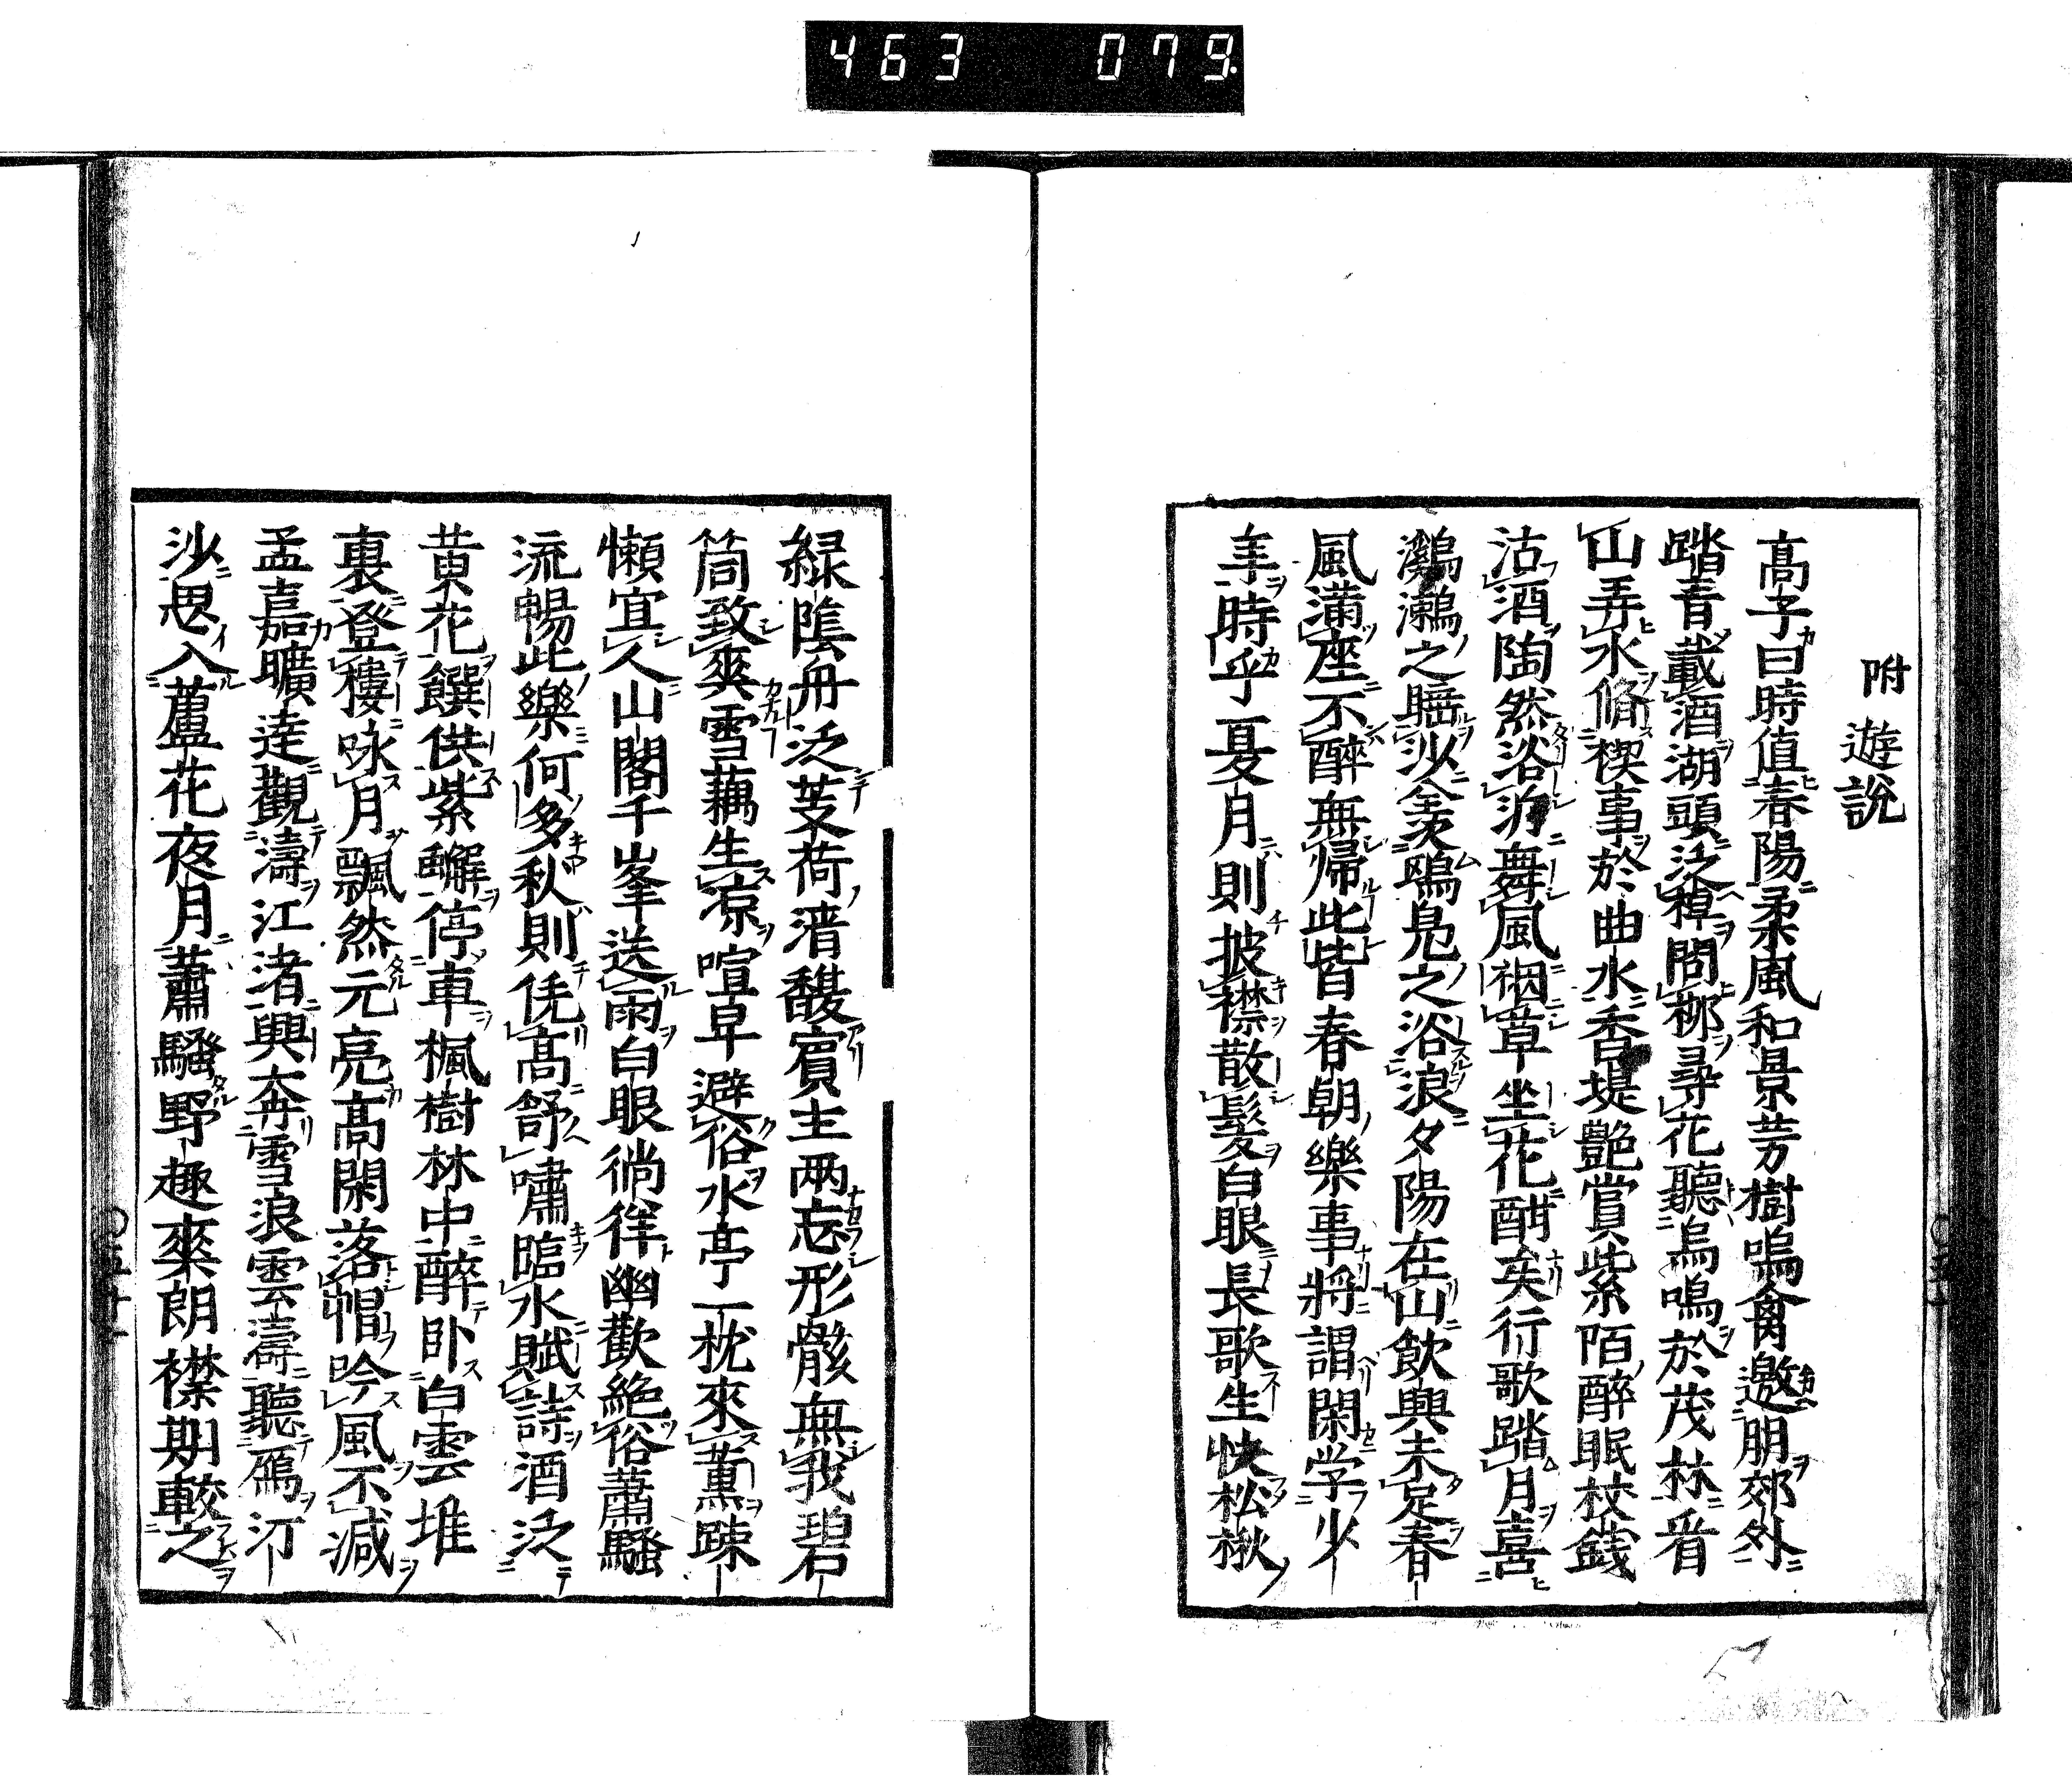 463 079
附遊説
高子曰時値春陽柔風和景芳樹鳴禽邀朋郊外
踏青載酒湖頭泛棹問柳尋花聽鳥鳴於茂林看
山弄水脩禊事於曲水香堤艷賞紫陌醉眠杖錢
沽酒陶然浴沂舞風裀草坐花酣矣行歌踏月喜
鸂鶒之睡沙羨鷗鳧之浴浪夕陽在山飲興未足春
風滿座不醉無歸此皆春朝樂事將謂閑学少
年時乎夏月則披襟散髮白眼長歌坐快松楸
緑陰舟泛芰荷清馥賓主兩忘形骸無我碧
筒致爽雪藕生凉喧卑避俗水亭一枕來薫踈
懶宜人山閣千峯送雨白眼徜徉幽歡絶俗蕭騷
流暢此樂何多秋則凭高舒嘯臨水賦詩酒泛
黄花饌供紫蠏停車楓樹林中醉卧白雲堆
裏登樓咏月飄然元亮高閑落帽吟風不減
孟嘉曠達觀濤江渚興奔雪浪雲濤聽鴈汀
沙思入蘆花夜月蕭騷野趣爽朗襟期較之